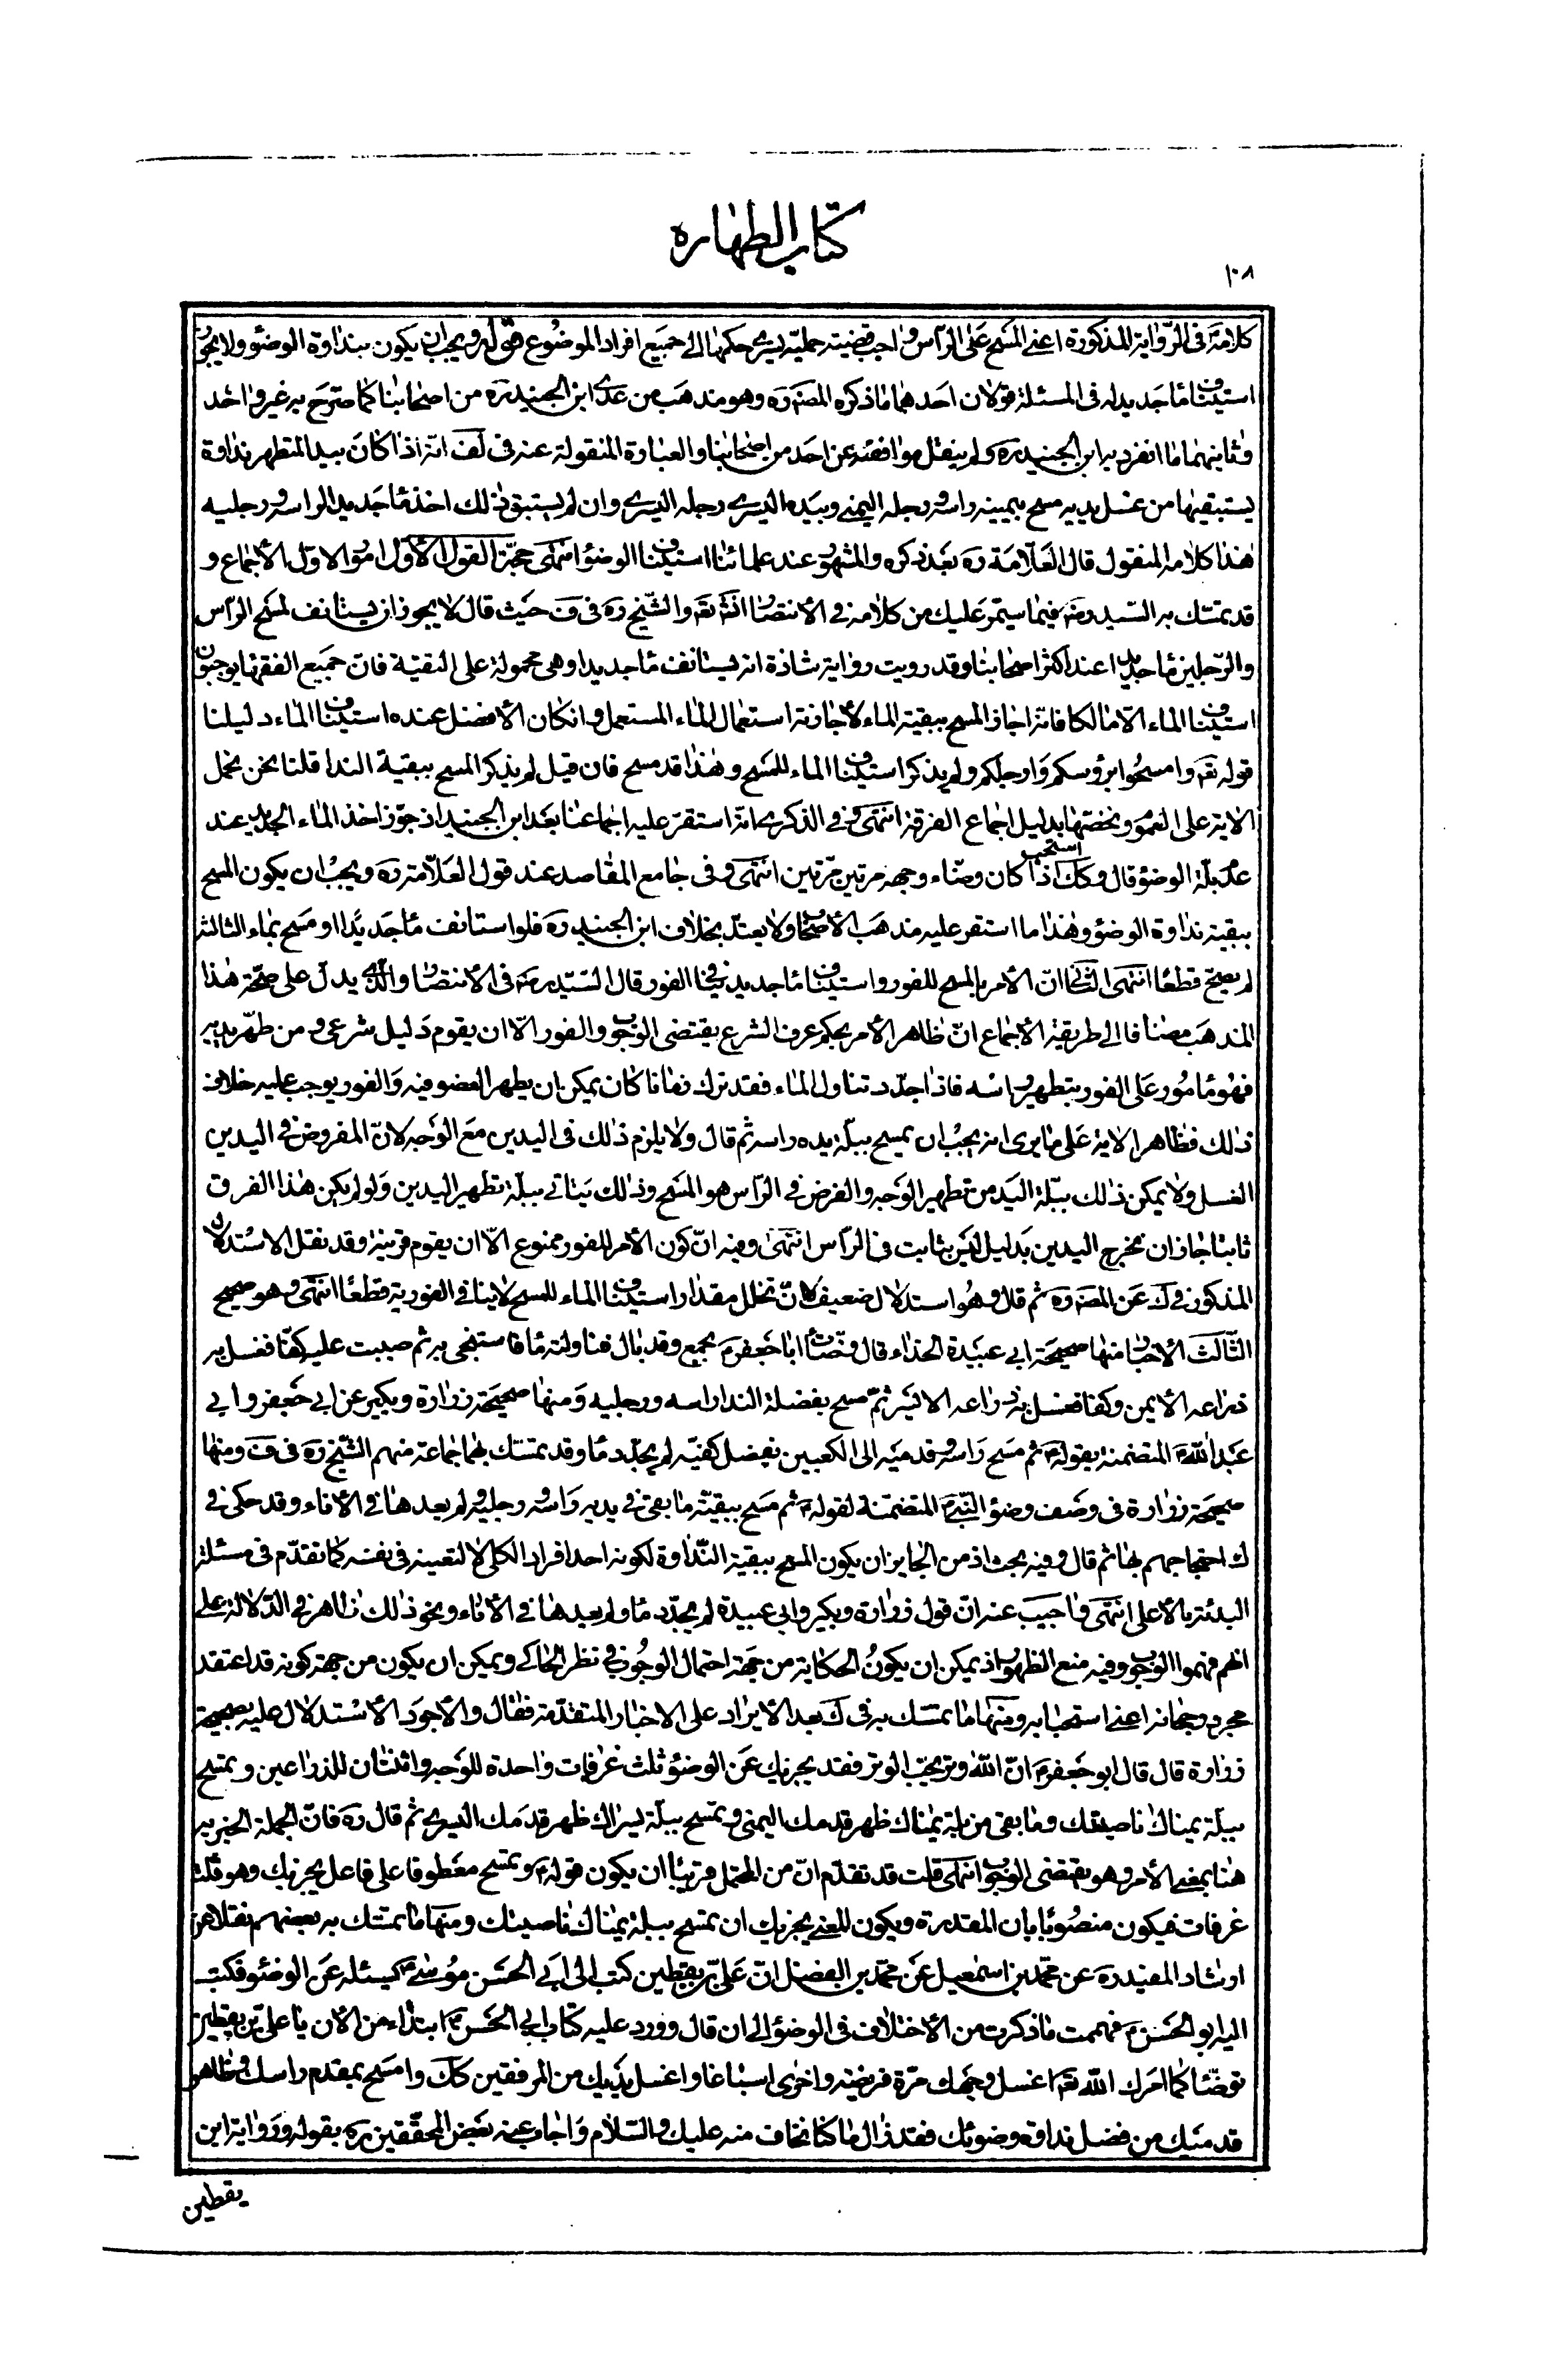 كتاب الطهاره
١٠٨
كلامه فى الرّواية المذكورة اعنى المسح على الرّأس واجب قضيّته حمليّة يسرى حكمها الى جميع افراد الموضوع قوله ويجب ان يكون بنداوة الوضوء ولا يجوز
استيناف ماء جديد له فى المسئلة قولان احدهما ما ذكره المصنف ره وهو مذهب من عدى ابن الجنيد ره من اصحابنا كما صرّح به غير واحد
وثانيهما ما انفرد به ابن الجنيد ره ولم ينقل موافقته عن احد من اصحابنا والعبارة المنقولة عنه فى لف انّه اذا كان بيد المتطهر نداوة
يستبقيها من غسل يديه مسح بيمينه راسه و رجله اليمنى وبيده اليسرى رجله اليسرى وان لم يستبق ذلك اخذ ماء جديدا لراسه ورجليه
هذا كلامه المنقول قال العلّامة ره بعد ذكره والمشهور عند علمائنا استيناف الوضوء انتهى حجّة القول الأوّل امور الاوّل الأجماع و
قد تمسّك به السّيد رضه فيما سيمرّ عليك من كلامه فى الأنتصار انش تعه والشّيخ ره فى ف حيث قال لا يجوز ان يستانف لمسح الرّأس
والرّجلين ماء جديدا عند اكثر اصحابنا وقد رويت رواية شاذة انه يستانف ماء جديدا وهى محمولة على التقيّة فانّ جميع الفقهاء يوجبون
استيناف الماء الّا مالكا فانّه اجاز المسح ببقيّة الماء لأجازته استعمال الماء المستعمل وان كان الأفضل عنده استيناف الماء دليلنا
قوله تعه وامسحوا برؤسكم وارجلكم ولم يذكر استيناف الماء للمسح وهذا قد مسح فان قيل لم يذكر المسح ببقيّة الندا قلنا نحن نحمل
الاية على العموم ونخصّها بدليل اجماع الفرقة انتهى وفى الذكرى انّه استقرّ عليه اجماعنا بعد ابن الجنيد اذ جوّز اخذ الماء الجديد عند
عدم بلّة الوضوء قال وكك اذا استحب كان وضّاء وجهه مرتين مرّتين انتهى وفى جامع المقاصد عند قول العلّامة ره ويجب ان يكون المسح
ببقيّة نداوة الوضوء وهذا ما استقر عليه مذهب الأصحاب ولا يعتدّ بخلاف ابن الجنيد ره فلو استانف ماء جديدا او مسح بماء الثالثة
لم يصحّ قطعًا انتهى الثّانى انّ الأمر بالمسح للفور واستيناف ماء جديد ينافى الفور قال السّيّد رضه فى الأنتصار والّذى يدلّ على صحّة هذا
المذهب مضافا الى طريقة الأجماع انّ ظاهر الأمر بحكم عرف الشرع يقتضى الوجوب والفور الّا ان يقوم دليل شرعى و من طهّر يديه
فهو مامور على الفور بتطهير راسه فاذا جدّد تناول الماء فقد ترك زمانا كان يمكن ان يطهر العضو فيه والفور يوجب عليه خلاف
ذلك فظاهر الاية على ما يرى انه يجب ان يمسح ببلّة يده راسه ثم قال ولا يلزم ذلك فى اليدين مع الوجه لانّ المفروض فى اليدين
الغسل ولا يمكن ذلك ببلّة اليد من تطهير الوجه والفرض فى الرّأس هو المسح وذلك يتاتى ببلّة تطهير اليدين ولو لم يكن هذا الفرق
ثابتا جاز ان نخرج اليدين بدليل ليس بثابت فى الرّأس انتهى وفيه انّ كون الأمر للفور ممنوع الّا ان يقوم قرينة وقد نقل الاستدلال
المذكور فى ك عن المصنف ره ثم قال وهو استدلال ضعيف لانّ تخلل مقدار استيناف الماء للمسح لا ينافى الفورية قطعًا انتهى وهو صحيح
الثّالث الأخبار منها صحيحة ابى عبيدة الحذاء قال وضّأت ابا جعفر م بجمع وقد بال فناولته ماء فاستنجى به ثم صببت عليه كفّا فغسل به
ذراعه الأيمن وكفا فغسل به ذراعه الايسر ثمّ مسح بفضلة الندا راسه ورجليه ومنها صحيحة زرارة وبكير عن ابى جعفر وابى
عبد الله م المتضمنة بقوله م ثم مسح راسه و قدميه الى الكعبين بفضل كفيّه لم يجدّد ماء وقد تمسّك بهما جماعة منهم الشّيخ ره فى ف ومنها
صحيحة زرارة فى وصف وضوء النّبى م المتضمّنة لقوله م ثم مسح ببقيّة ما بقى فى يديه راسه و رجليه و لم يعدهما فى الأناء وقد حكى فى
ك احتجاجهم بها ثم قال وفيه بحث اذ من الجايز ان يكون المسح ببقية النّداوة لكونه احد افراد الكلى لا لتعيينه فى نفسه كما تقدّم فى مسئلة
البدئة بالأعلى انتهى واجيب عنه انّ قول زرارة وبكير وابى عبيدة لم يجدّد ماء ولم يعدهما فى الأناء ونحو ذلك ظاهر فى الدّلالة على
انهم فهموا الوجوب وفيه منع الظهور اذ يمكن ان يكون الحكاية من جهة احتمال الوجوب فى نظر الحاكى ويمكن ان يكون من جهة كونه قد اعتقد
مجرد رجحانه اعنى استحبابه ومنها ما تمسّك به فى ك بعد الأيراد على الاخبار المتقدّمة فقال والأجود الأستدلال عليه بصحيحة
زرارة قال قال ابو جعفر م انّ الله وتر يحبّ الوتر فقد يجزيك عن الوضوء ثلث غرفات واحدة للوجه واثنتان للذراعين وتمسح
ببلّة يمناك ناصيتك وما بقى من بلّة يمناك ظهر قدمك اليمنى وتمسح ببلّة يسراك ظهر قدمك اليسرى ثم قال ره فانّ الجملة الخبرية
هنا بمعنى الأمر وهو يقتضى الوجوب انتهى قلت قد تقدّم انّ من المحتمل قريبا ان يكون قوله م وتمسح معطوفا على فاعل يجزيك وهو ثلث
غرفات فيكون منصوبًا بان المقدرة ويكون المعنى يجزيك ان تمسح ببلة يمناك ناصيتك ومنها ما تمسّك به بعضهم نقلا عن
ارشاد المفيد ره عن محمّد بن اسمعيل عن محمّد بن الفضل انّ علىّ بن يقطين كتب الى ابى الحسن موسى م يسئله عن الوضوء فكتب
اليه ابو الحسن م فهمت ما ذكرت من الأختلاف فى الوضوء الى ان قال وورد عليه كتاب ابى الحسن م ابتداء من الان يا علىّ بن يقطين
توضّأ كما امرك الله تعه اغسل وجهك مرّة فريضة واخرى اسباغا واغسل يديك من المرفقين كك وامسح بمقدم راسك وظاهر
قدميك من فضل نداوة وضوئك فقد زال ما كنا نخاف منه عليك والسّلام واجاب عنه بعض المحقّقين ره بقوله ورواية ابن
يقطين